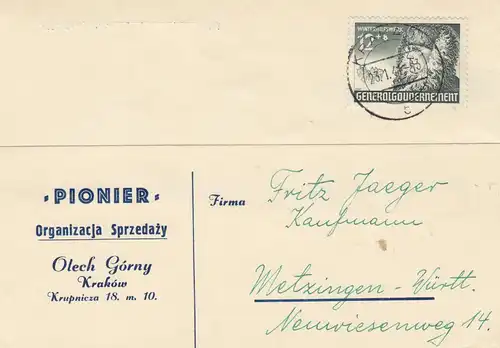 WINTERHILFSWERK
12+8
GENERALGOUVERNEMENT
· PIONIER ·
Organizacja Sprzedaży
Olech Górny
Kraków
Krupnicza 18. m. 10.
Firma
Fritz Jaeger
Kaufmann
Metzingen - Württ.
Neuwiesenweg 14.